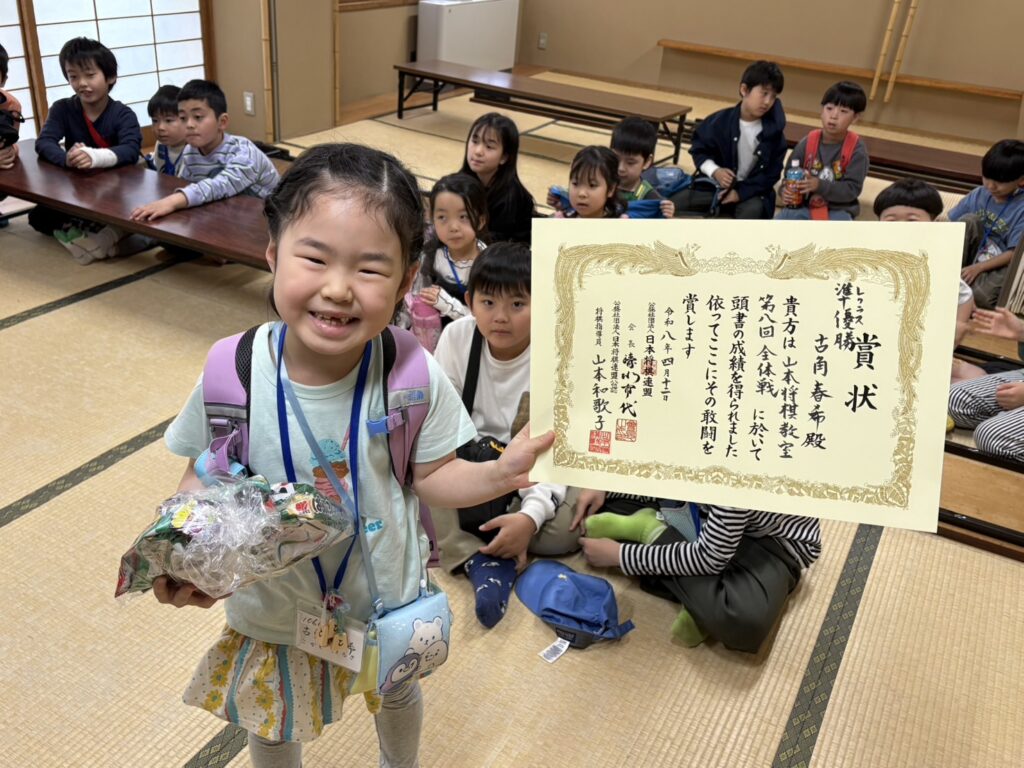 賞状
レックス
準優勝
古角春希殿
貴方は山本将棋教室
第八回 全体戦 に於いて
頭書の成績を得られました
依ってここにその敢闘を
賞します
令和八年四月十二日
公益社団法人日本将棋連盟
会長 清水市代
公益社団法人日本将棋連盟公認
将棋指導員 山本和歌子